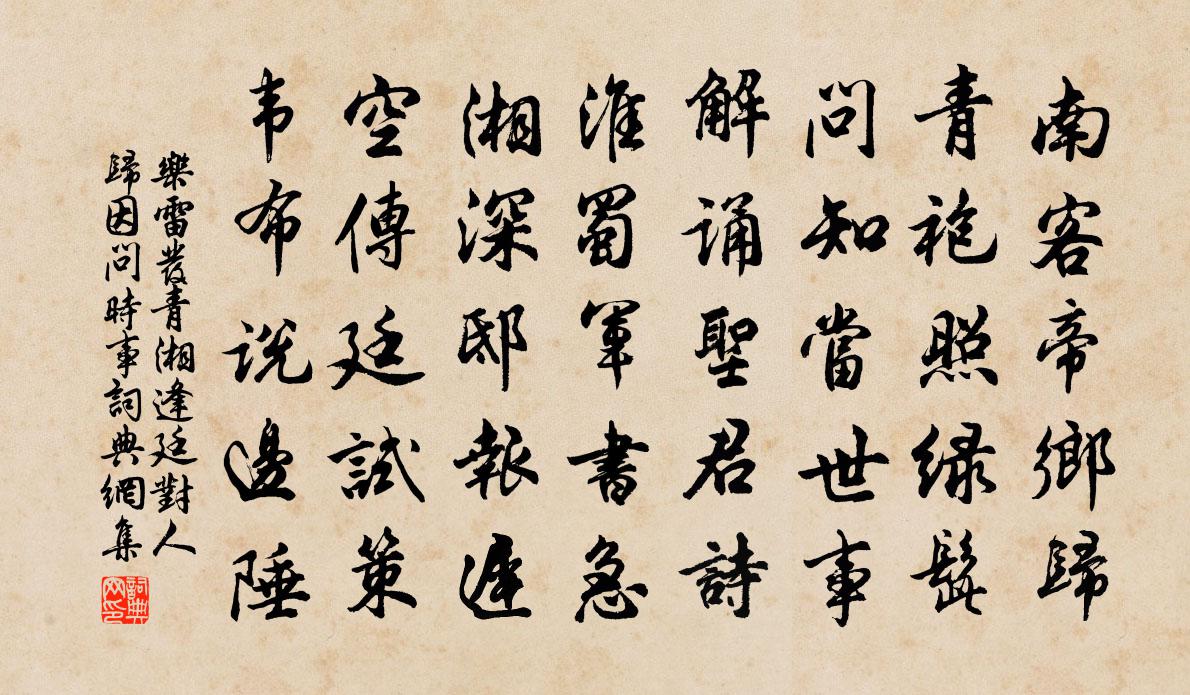 南客帝鄉歸
青袍照綠髭
問知當世事
解誦聖君詩
淮蜀軍書急
湘深邸報遲
空傳廷試策
韦布説邊陲
樂雷發青湘逢廷對人
歸因問時事詞典網集
詞典
网印